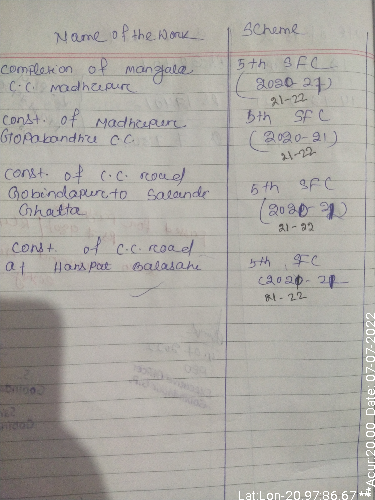 Name of the Work
Scheme
completion of mangala
C.C. madhupur
5th SFC
(2020-21)
21-22
const. of Madhupur
Gopabandhu C.C.
5th SFC
(2020-21)
21-22
const. of C.C. road
Gobindapur to Salandi
Ghatta
5th SFC
(2020-21)
21-22
const. of C.C. road
at Hanspat Balasahi
5th SFC
(2020-21
21-22
Lat:Lon-20.97:86.67
**Acur:20.00 Date: 07-07-2022